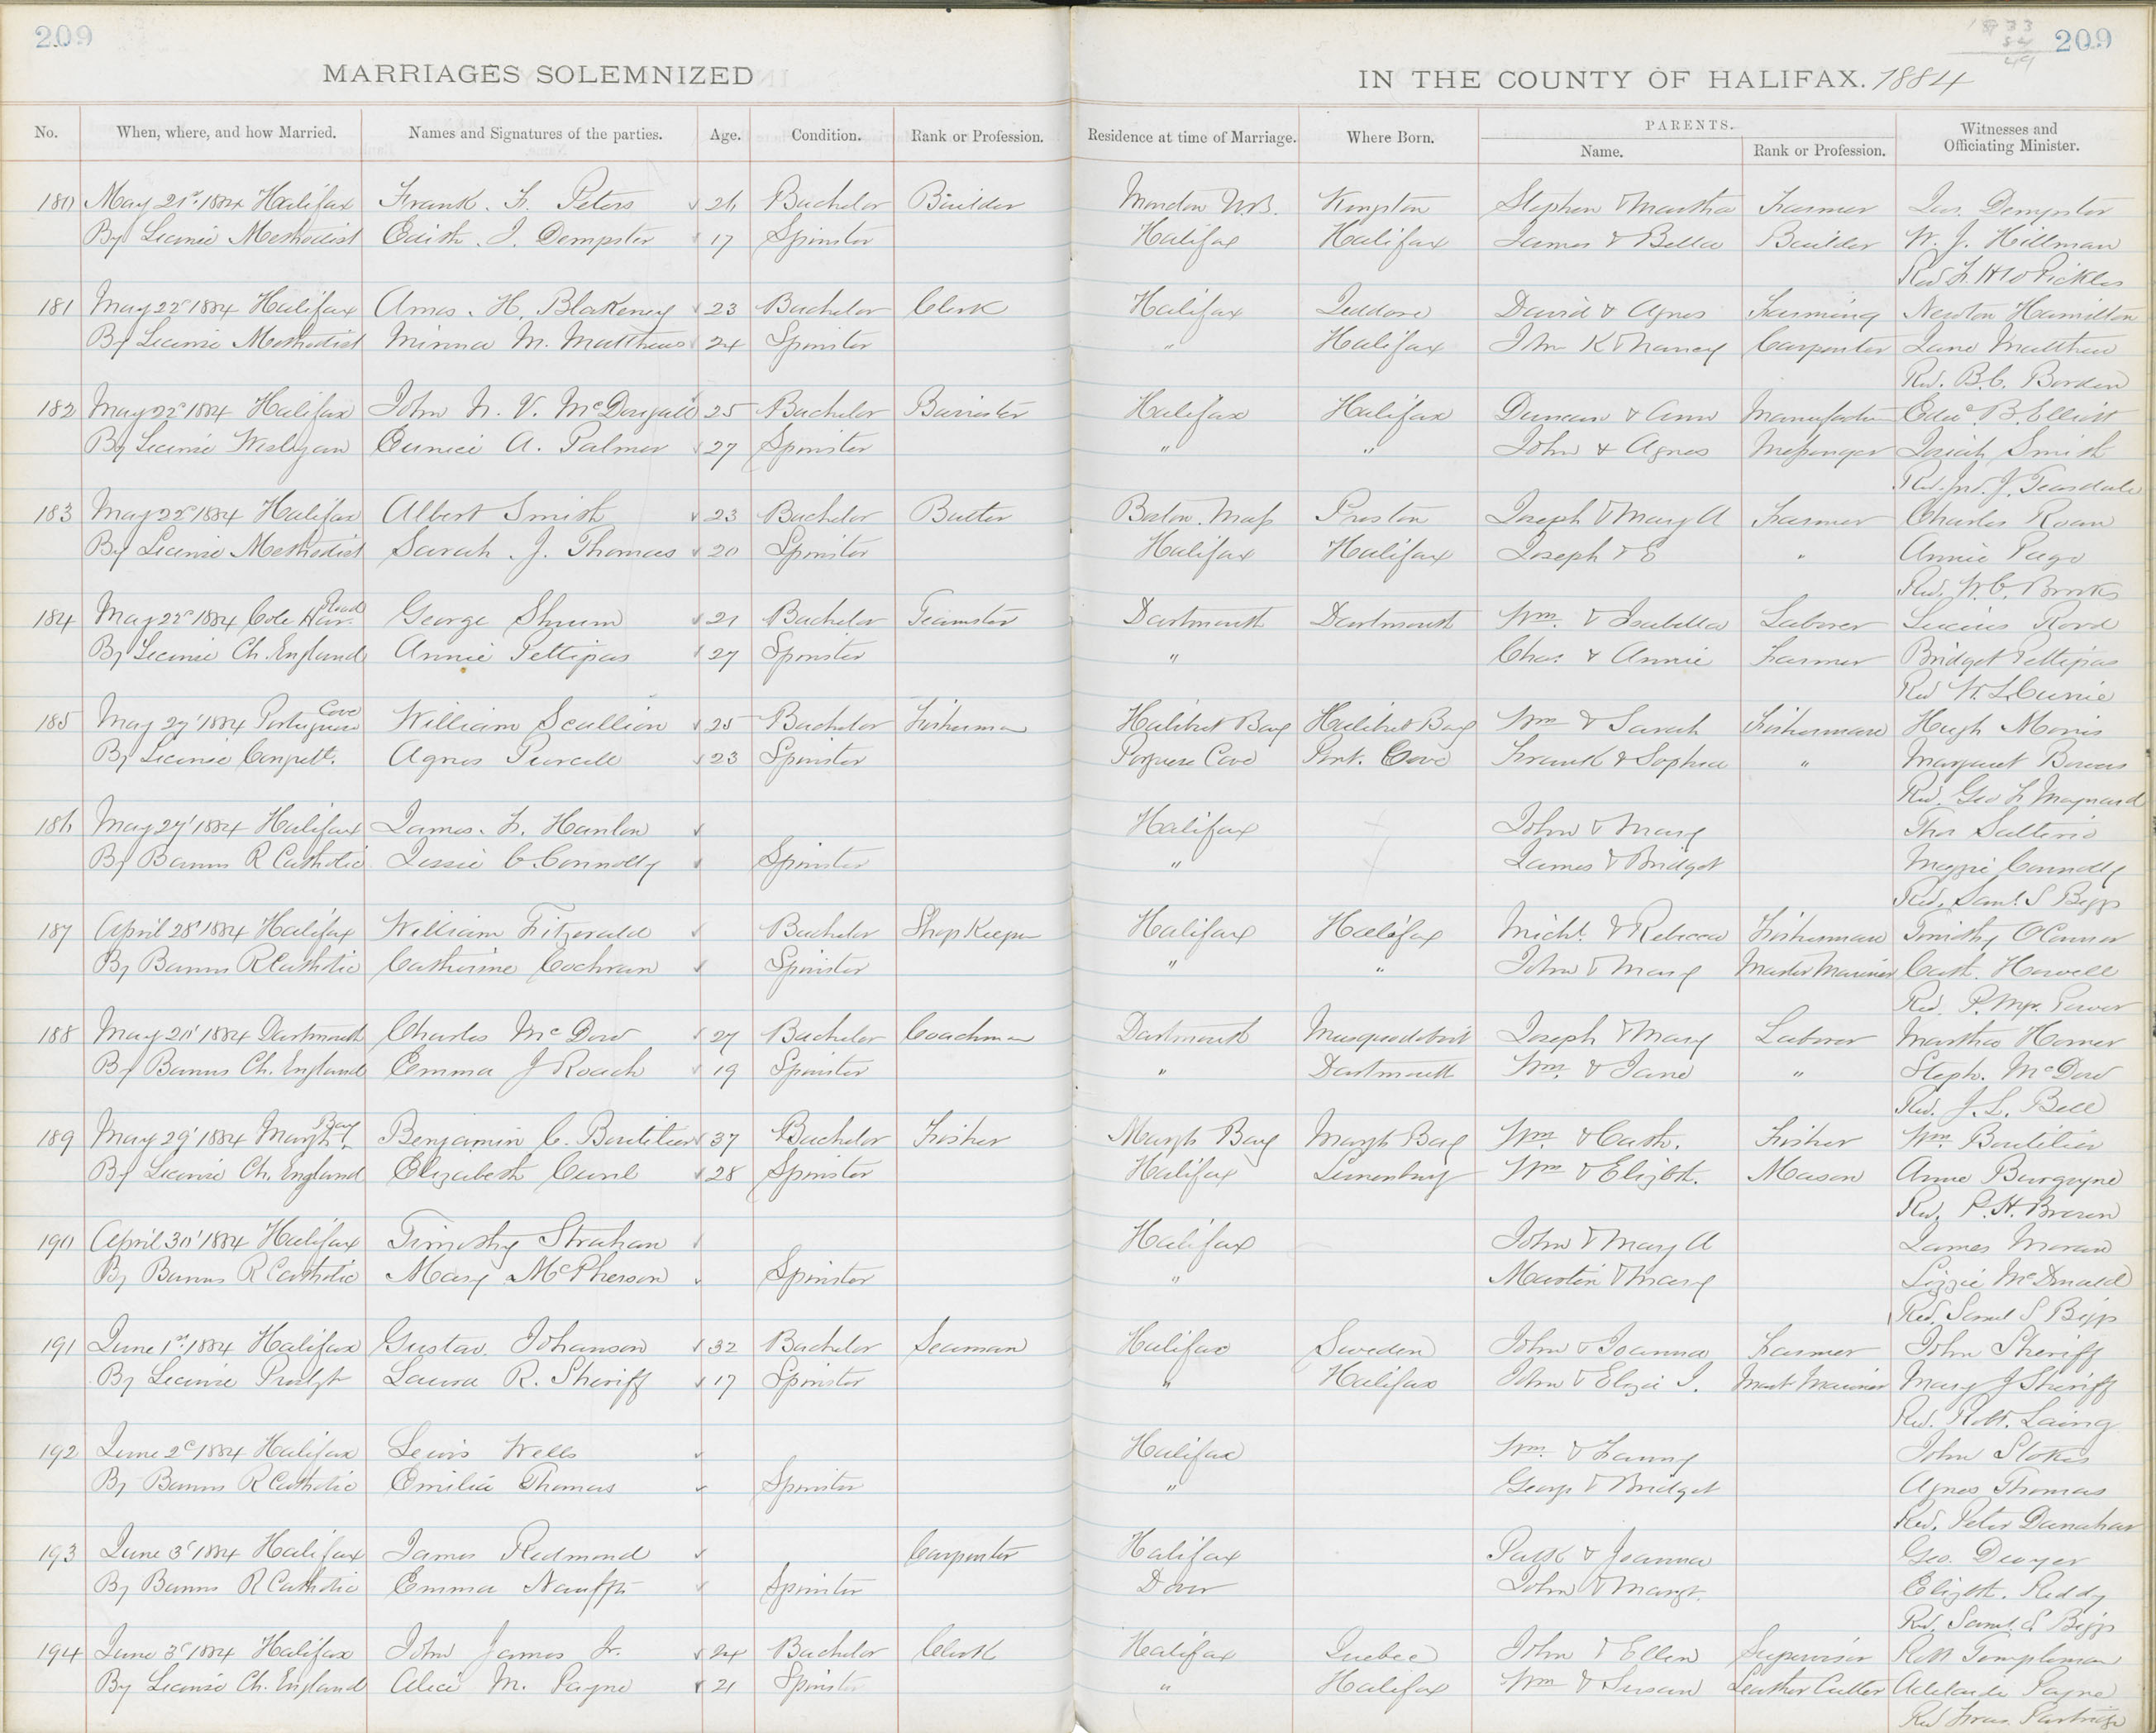 209
1833
54
49
209
MARRIAGES SOLEMNIZED IN THE COUNTY OF HALIFAX. 1884
No. When, where, and how Married. Names and Signatures of the parties. Age. Condition. Rank or Profession. Residence at time of Marriage. Where Born. PARENTS. Name. Rank or Profession. Witnesses and Officiating Minister.
180 May 21st 1884 Halifax Frank. F. Peters 26 Bachelor Builder Moncton N.B. Kingston Stephen & Martha Farmer Jas. Dempster
By Licence Methodist Edith. J. Dempster 17 Spinster Halifax Halifax James & Bella Builder W. J. Hillman
Rev F. H W Pickles
181 May 22d 1884 Halifax Amos. H. Blakeney 23 Bachelor Clerk Halifax Jeddore David & Agnes Farming Newton Hamilton
By Licence Methodist Minna M. Matthews 24 Spinster " Halifax Jno K & Nancy Carpenter Jane Matthew
Rev. B.C. Borden
182 May 22d 1884 Halifax John N. V. McDougall 25 Bachelor Barrister Halifax Halifax Duncan & Ann Manufacturer Edwd. B. Elliott
By Licence Wesleyan Eunice A. Palmer 27 Spinster " " John & Agnes Messenger Josiah Smith
Rev. Jno. J. Teasdale
183 May 22d 1884 Halifax Albert Smith 23 Bachelor Butler Boston. Mass Preston Joseph & Mary A Farmer Charles Roan
By Licence Methodist Sarah. J. Thomas 20 Spinster Halifax Halifax Joseph & E " Annie Page
Rev. W. C. Brooks
184 May 22d 1884 Cole Har. Road George Shrum 21 Bachelor Teamster Dartmouth Dartmouth Wm. & Isabella Laborer Lucius
By Licence Ch. England Annie Pettipas 27 Spinster " Chas. & Annie Farmer Bridget Pettipas
Rev W. L. Currie
185 May 27' 1884 Portuguese Cove William Scullion 25 Bachelor Fisherman Halibut Bay Halibut Bay Wm & Sarah Fisherman Hugh Morris
By Licence Agnes Purcell 23 Spinster Porguese Cove Port. Cove Frank & Sophia " Margaret
Rev. Geo F Maynard
186 May 27' 1884 Halifax James. F. Hanlon Halifax John & Mary Thos
By Banns R Catholic Jessie C. Connolly Spinster " James & Bridget Meggie Connolly
Rev. Saml S Biggs
187 April 28' 1884 Halifax William Fitzerald Bachelor Shop Keeper Halifax Halifax Michl. & Rebecca Fisherman Timothy OConnor
By Banns R Catholic Catherine Cochran Spinster " " John & Mary Master Mariner Cath. Howell
Rev. P. Power
188 May 20' 1884 Dartmouth Charles McDow 27 Bachelor Coachman Dartmouth Musquodoboit Joseph & Mary Laborer Martha Horner
By Banns Ch. England Emma J Roach 19 Spinster " Dartmouth Wm. & Jane " Steph. McDow
Rev. J. L. Bell
189 May 29' 1884 Margts Bay Benjamin C. Boutilier 37 Bachelor Fisher Margts Bay Margts Bay Wm & Cath. Fisher Wm. Boutilier
By Licence Ch. England Elizabeth 28 Spinster Halifax Lunenburg Wm & Elizbt. Mason Anne Burgoyne
Rev. P. H. Brown
190 April 30' 1884 Halifax Timothy Strahan Halifax John & Mary A James Moran
By Banns R Catholic Mary McPherson Spinster " Martin & Mary Lizzie McDonald
Rev. Saml S Biggs
191 June 1st 1884 Halifax Gustav. Johanson 32 Bachelor Seaman Halifax Sweden John & Joanna Farmer John Sheriff
By Licence Presbyt Laura R. Sheriff 17 Spinster " Halifax John & Eliza J. Mast Mariner Mary J Sheriff
Rev. Robt. Laing
192 June 2d 1884 Halifax Lewis Wells Halifax Wm. & Fanny John Stokes
By Banns R Catholic Emilia Thomas Spinster " George & Bridget Agnes Thomas
Rev. Peter Danahar
193 June 3d 1884 Halifax James Redmond Carpenter Halifax Patk & Joanna Geo. Dwyer
By Banns R Catholic Emma Spinster Dover John & Margt. Elizbt. Reddy
Rev. Saml. S Biggs
194 June 3d 1884 Halifax John James Jr. 24 Bachelor Clerk Halifax Quebec John & Ellen Supervisor Robt Templeman
By Licence Ch. England Alice M. Payne 21 Spinster " Halifax Wm & Susan Leather Cutter Adelaide Payne
Rev Fras. Partridge